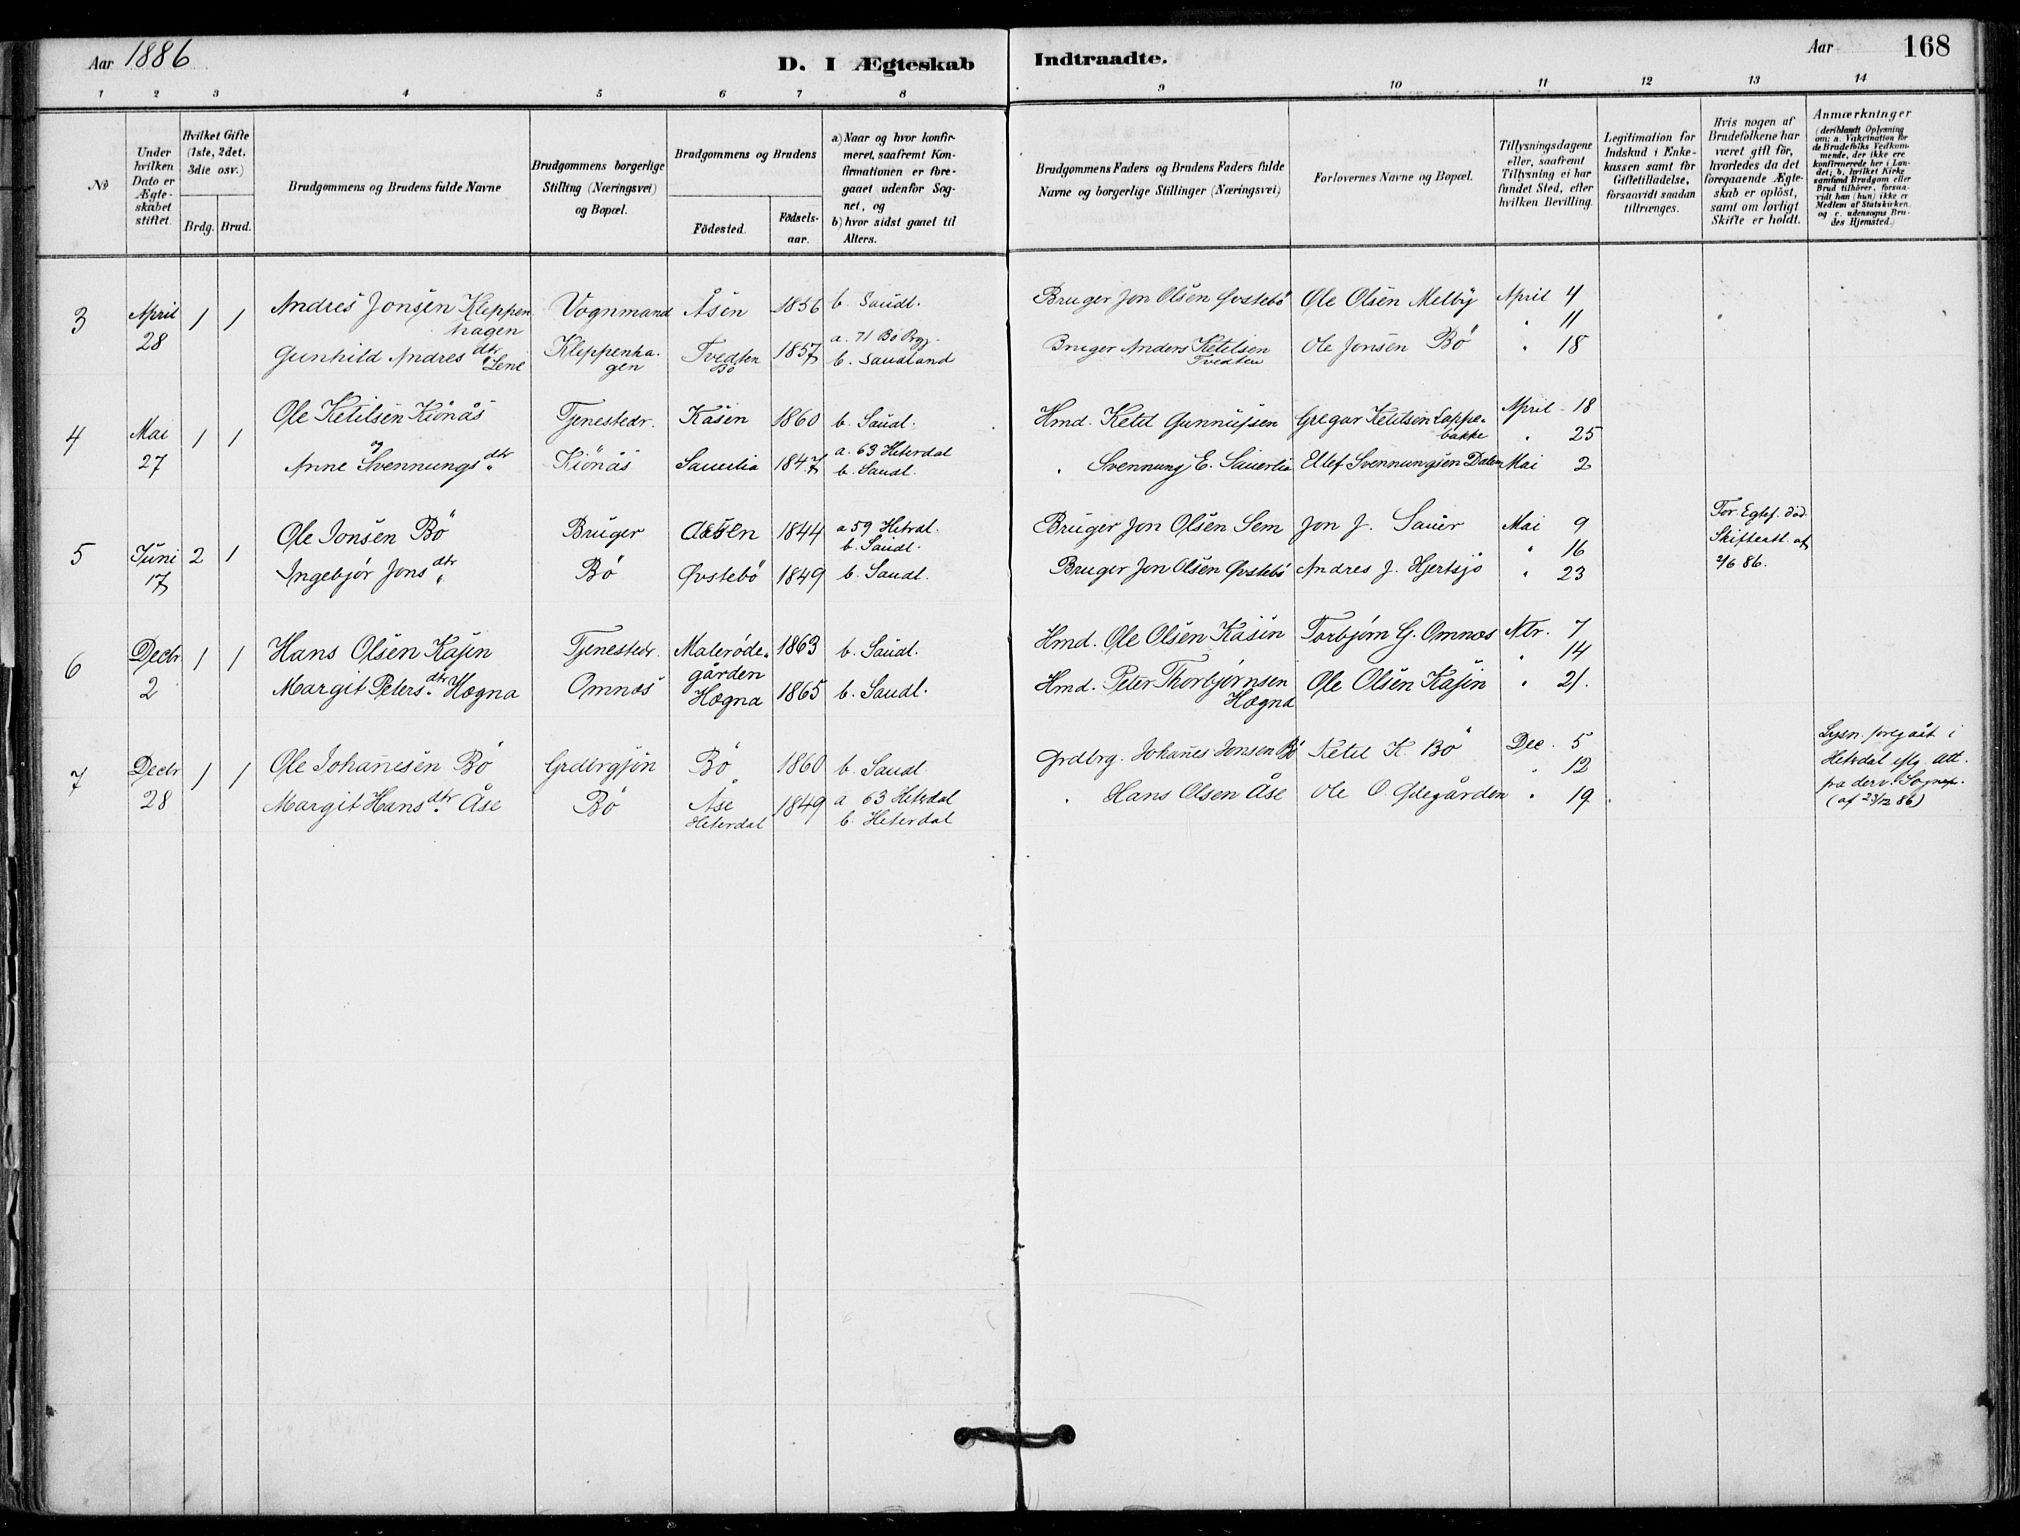 Aar 1886
D. I Ægteskab
Indtraadte.
Aar
168
1 2 3 4 5 6 7 8 9 10 11 12 13 14
No
Under hvilken Dato er Ægteskabet stiftet.
Hvilket Gifte (1ste, 2det, 3die osv.)
Brdg. Brud.
Brudgommens og Brudens fulde Navne
Brudgommens borgerlige Stilling (Næringsvei) og Bopæl.
Brudgommens og Brudens
Födested. Födselsaar.
a) Naar og hvor konfirmeret, saafremt Konfirmationen er foregaaet udenfor Sognet, og
b) hvor sidst gaaet til Alters.
Brudgommens Faders og Brudens Faders fulde Navne og borgerlige Stillinger (Næringsvei)
Forlovernes Navne og Bopæl.
Tillysningsdagene eller, saafremt Tillysning ei har fundet Sted, efter hvilken Bevilling.
Legitimation for Indskud i Enkekassen samt for Giftetilladelse, forsaavidt saadan tiltrænges.
Hvis nogen af Brudefolkene har været gift før, hvorledes da det foregaaende Ægteskab er oplöst, samt om lovligt Skifte er holdt.
Anmærkninger
(deriblandt Oplysning om: a. Vakcination for de Brudefolks Vedkommende, der ikke ere konfirmerede her i Landet; b. hvilket Kirkesamfund Brudgom eller Brud tilhörer, forsaavidt han (hun) ikke er Medlem af Statskirken, og c. udensogns Brudes Hjemsted.)
3 April 28 1 1
Andres Jonsen Kleppenhagen Vognmand Åsen 1856 b. Saudl. Bruger Jon Olsen Øvstebö Ole Olsen Melby April 4
" 11
Gunhild Andresdtr Lene Kleppenhagen Tvedten Bö 1857 a. 71 Bö Prgj. b. Saudland Bruger Anders Ketilsen Tvedten Ole Jonsen Bö " 18
4 Mai 27 1 1
Ole Ketilsen Kiönås Tjenestedr. Kåsen 1860 b. Saudl. Hmd. Ketil Gunnufsen Gregar Ketilsen Loppebakke April 18
" 25
Anne Svennungsdtr Kiönås Sauerlia 1847 a. 63 Hiterdal b. Saudl. " Svennung E. Sauerlia Ellef Svennungsen Dalen Mai 2
5 Juni 17 2 1
Ole Jonsen Bö Bruger Aasen 1844 a 59 Hitrdl. b. Saudl. Bruger Jon Olsen Sem Jon J. Sauer Mai 9 For. Egtef. död. Skifteatt. af 2/6 86.
" 16
Ingebjör Jonsdtr Bö Øvstebö 1849 b. Saudl. Bruger Jon Olsen Øvstebö Andres J. Hjertsjö " 23
6 Decbr 2 1 1
Hans Olsen Kåsin Tjenestedr. Malerødegården 1863 b. Saudl. Hmd. Ole Olsen Kåsin Torbjørn G. Omnæs Nbr. 7
" 14
Margit Petersdtr Hægna Omnæs Hægna 1865 b. Saudl. Hmd. Peter Thorbjørnsen Hægna Ole Olsen Kåsin " 21.
7 Decbr 28 1 1
Ole Johanesen Bö Grdbrgsön Bö 1860 b. Saudl. Grdbrg. Johanes Jonsen Bö Ketil K. Bö Dec. 5
" 12
Margit Hansdtr Åse Bö Åse Hiterdal 1849 a 63 Hitrdal b. Hiterdal " Hans Olsen Åse Ole O. Ødegården " 19
Lysn. foregået i Hitrdal iflg. Att. fra derv. Sognepr. (af 23/12 86)